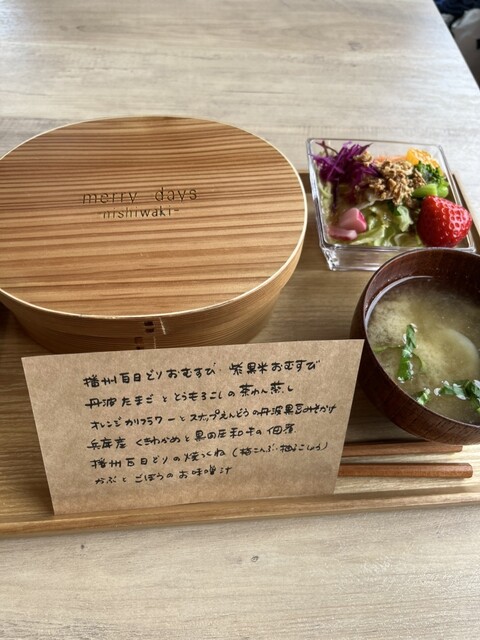 merry days
-nishiwaki-
播州百日どりおむすび 紫黒米おむすび
丹波たまごととうもろこしの茶わん蒸し
オレンジカリフラワーとスナップえんどうの丹波黒豆みそかけ
兵庫産 くきわかめと黒田庄和牛の佃煮
播州百日どりの焼つくね(梅こんぶ・柚こしょう)
かぶとごぼうのお味噌汁